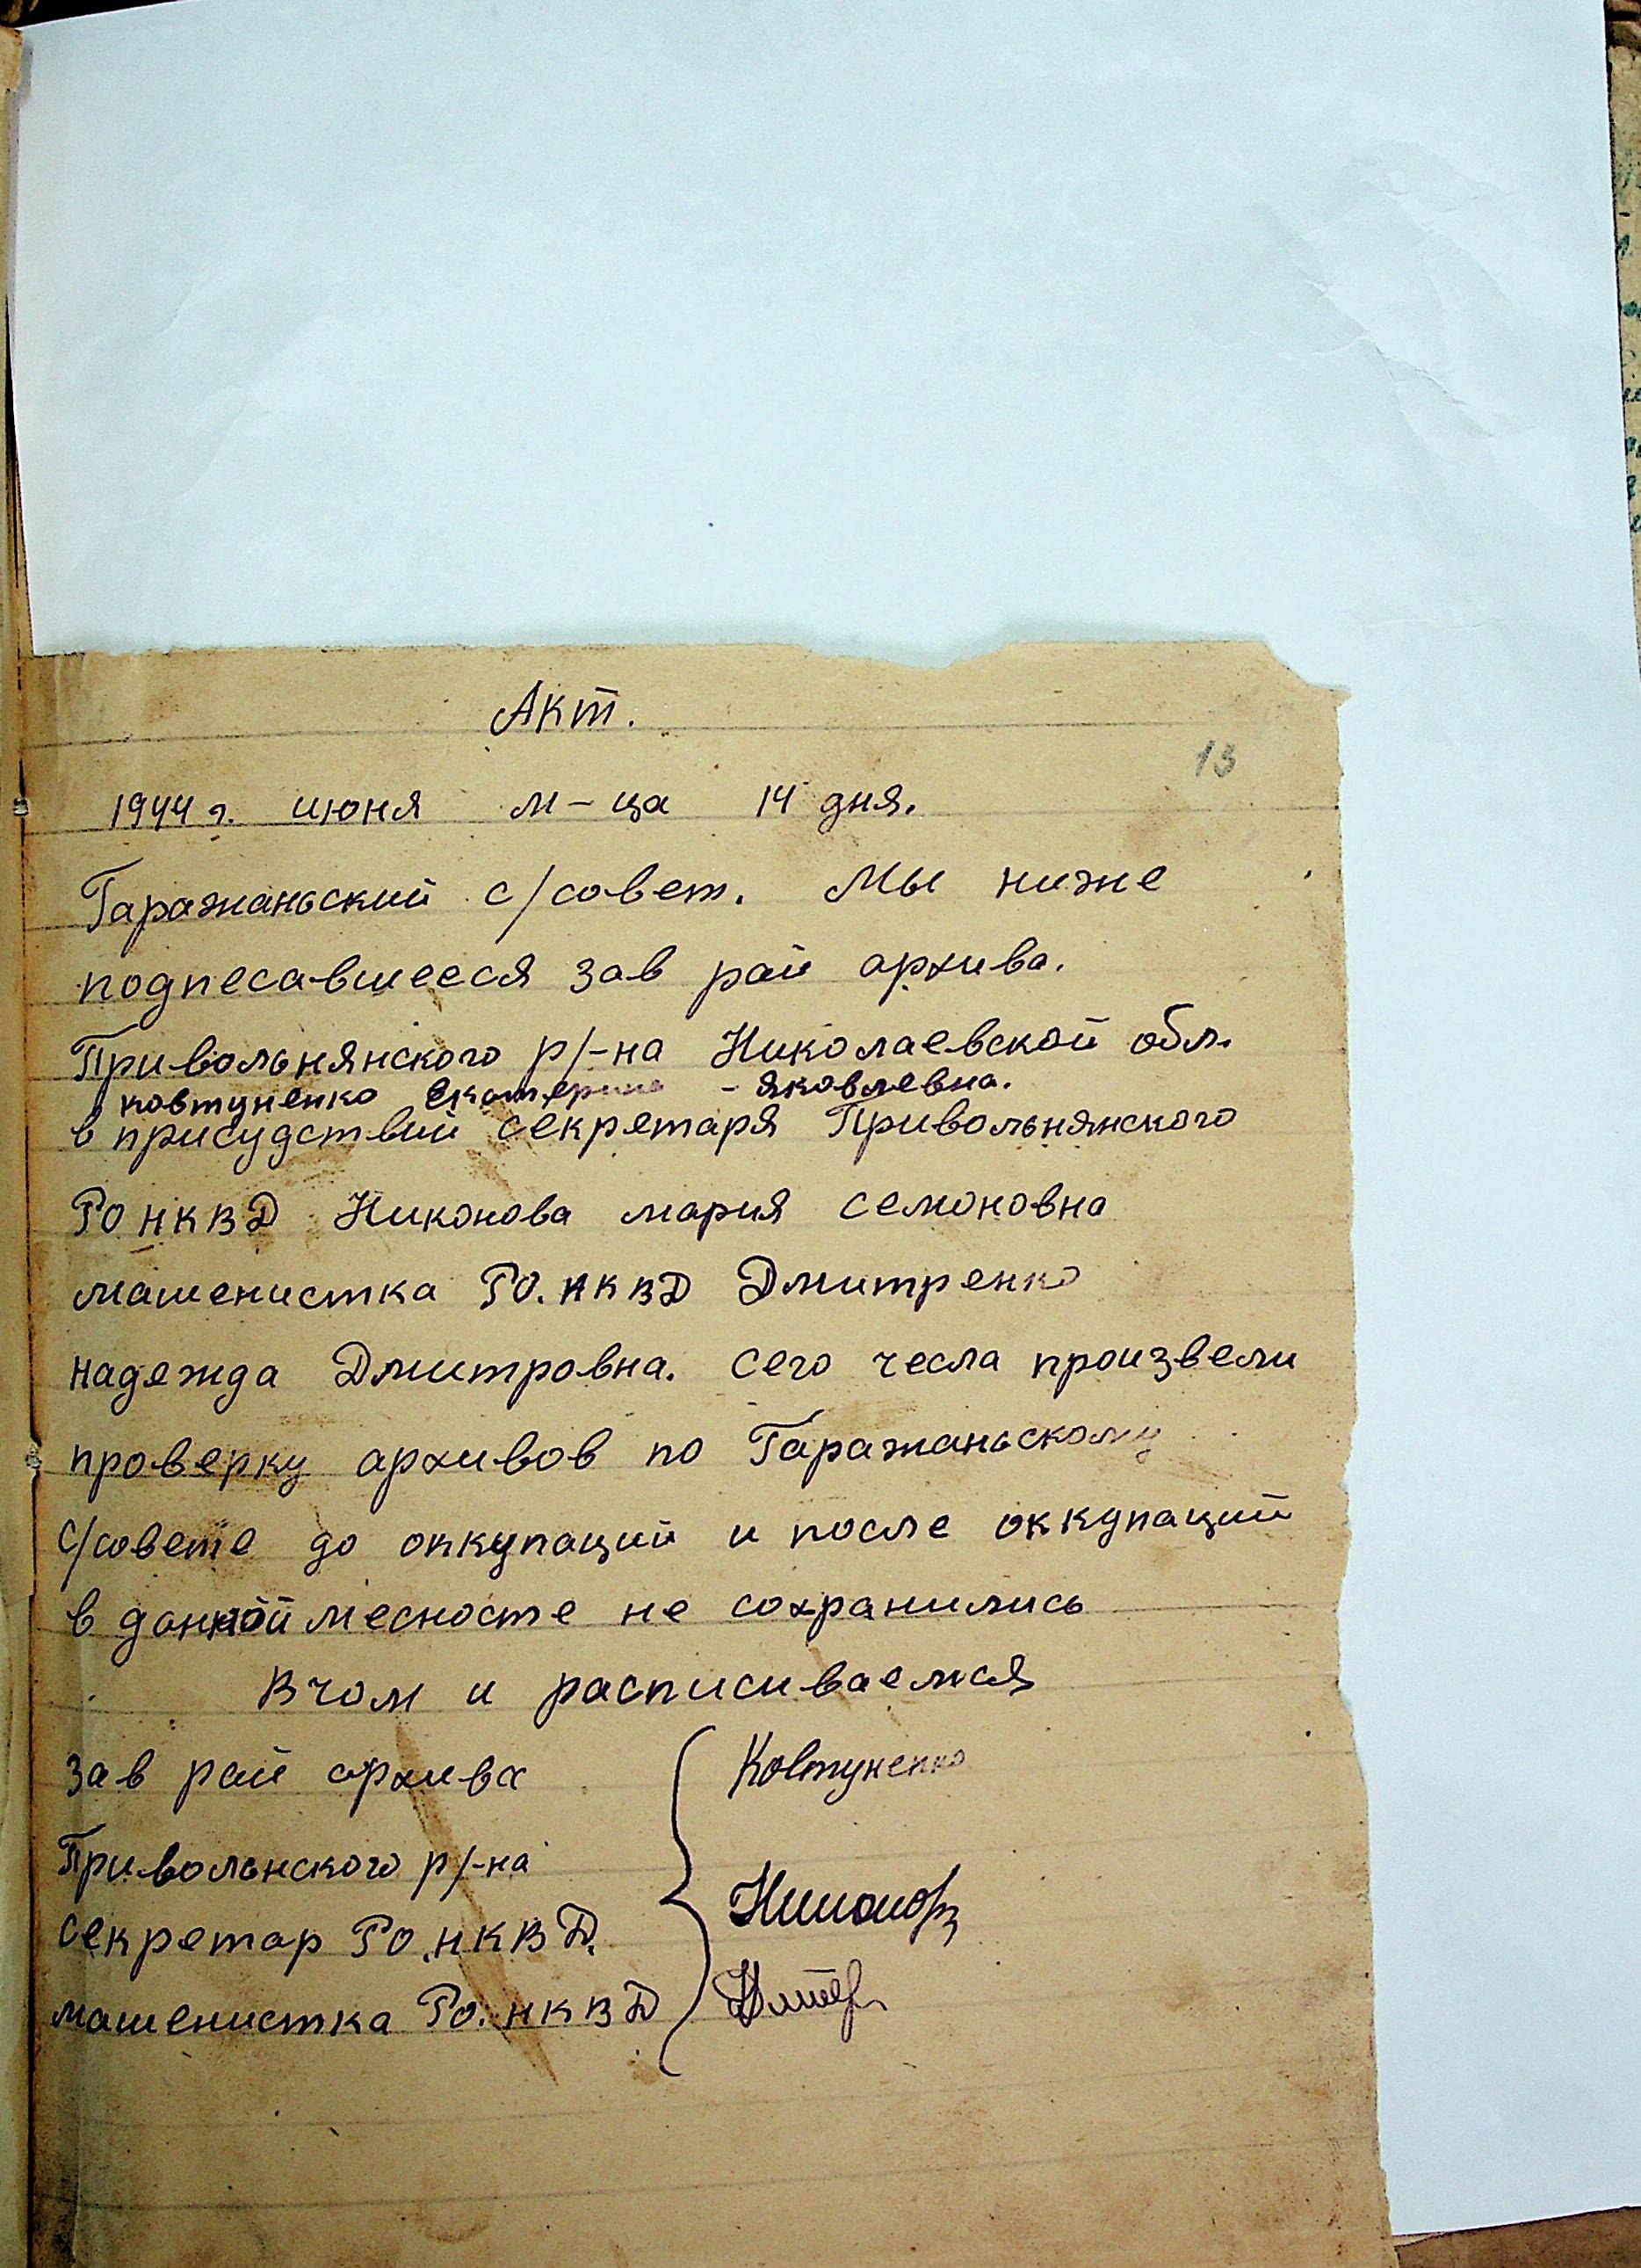 Акт.
13
1944 г. июня м-ца 14 дня.
Гаражаньский с/совет. Мы ниже
подпесавшееся зав рай архива.
Привольнянского р/-на Николаевской обл.
ковтуненко Екатерина - яковлевна.
в присудствий секретаря Привольнянского
РО НКВД Никонова мария семоновна
машенистка РО. НКВД Дмитренко
надежда Дмитровна. сего чесла произвели
проверку архивов по Гаражаньскому
с/совете до оккупаций и после оккупаций
в данной месносте не сохранились
В чом и расписиваемся
зав рай архива Ковтуненко
Привольнского р/-на
секретар РО.НКВД.
машенистка РО. НКВД